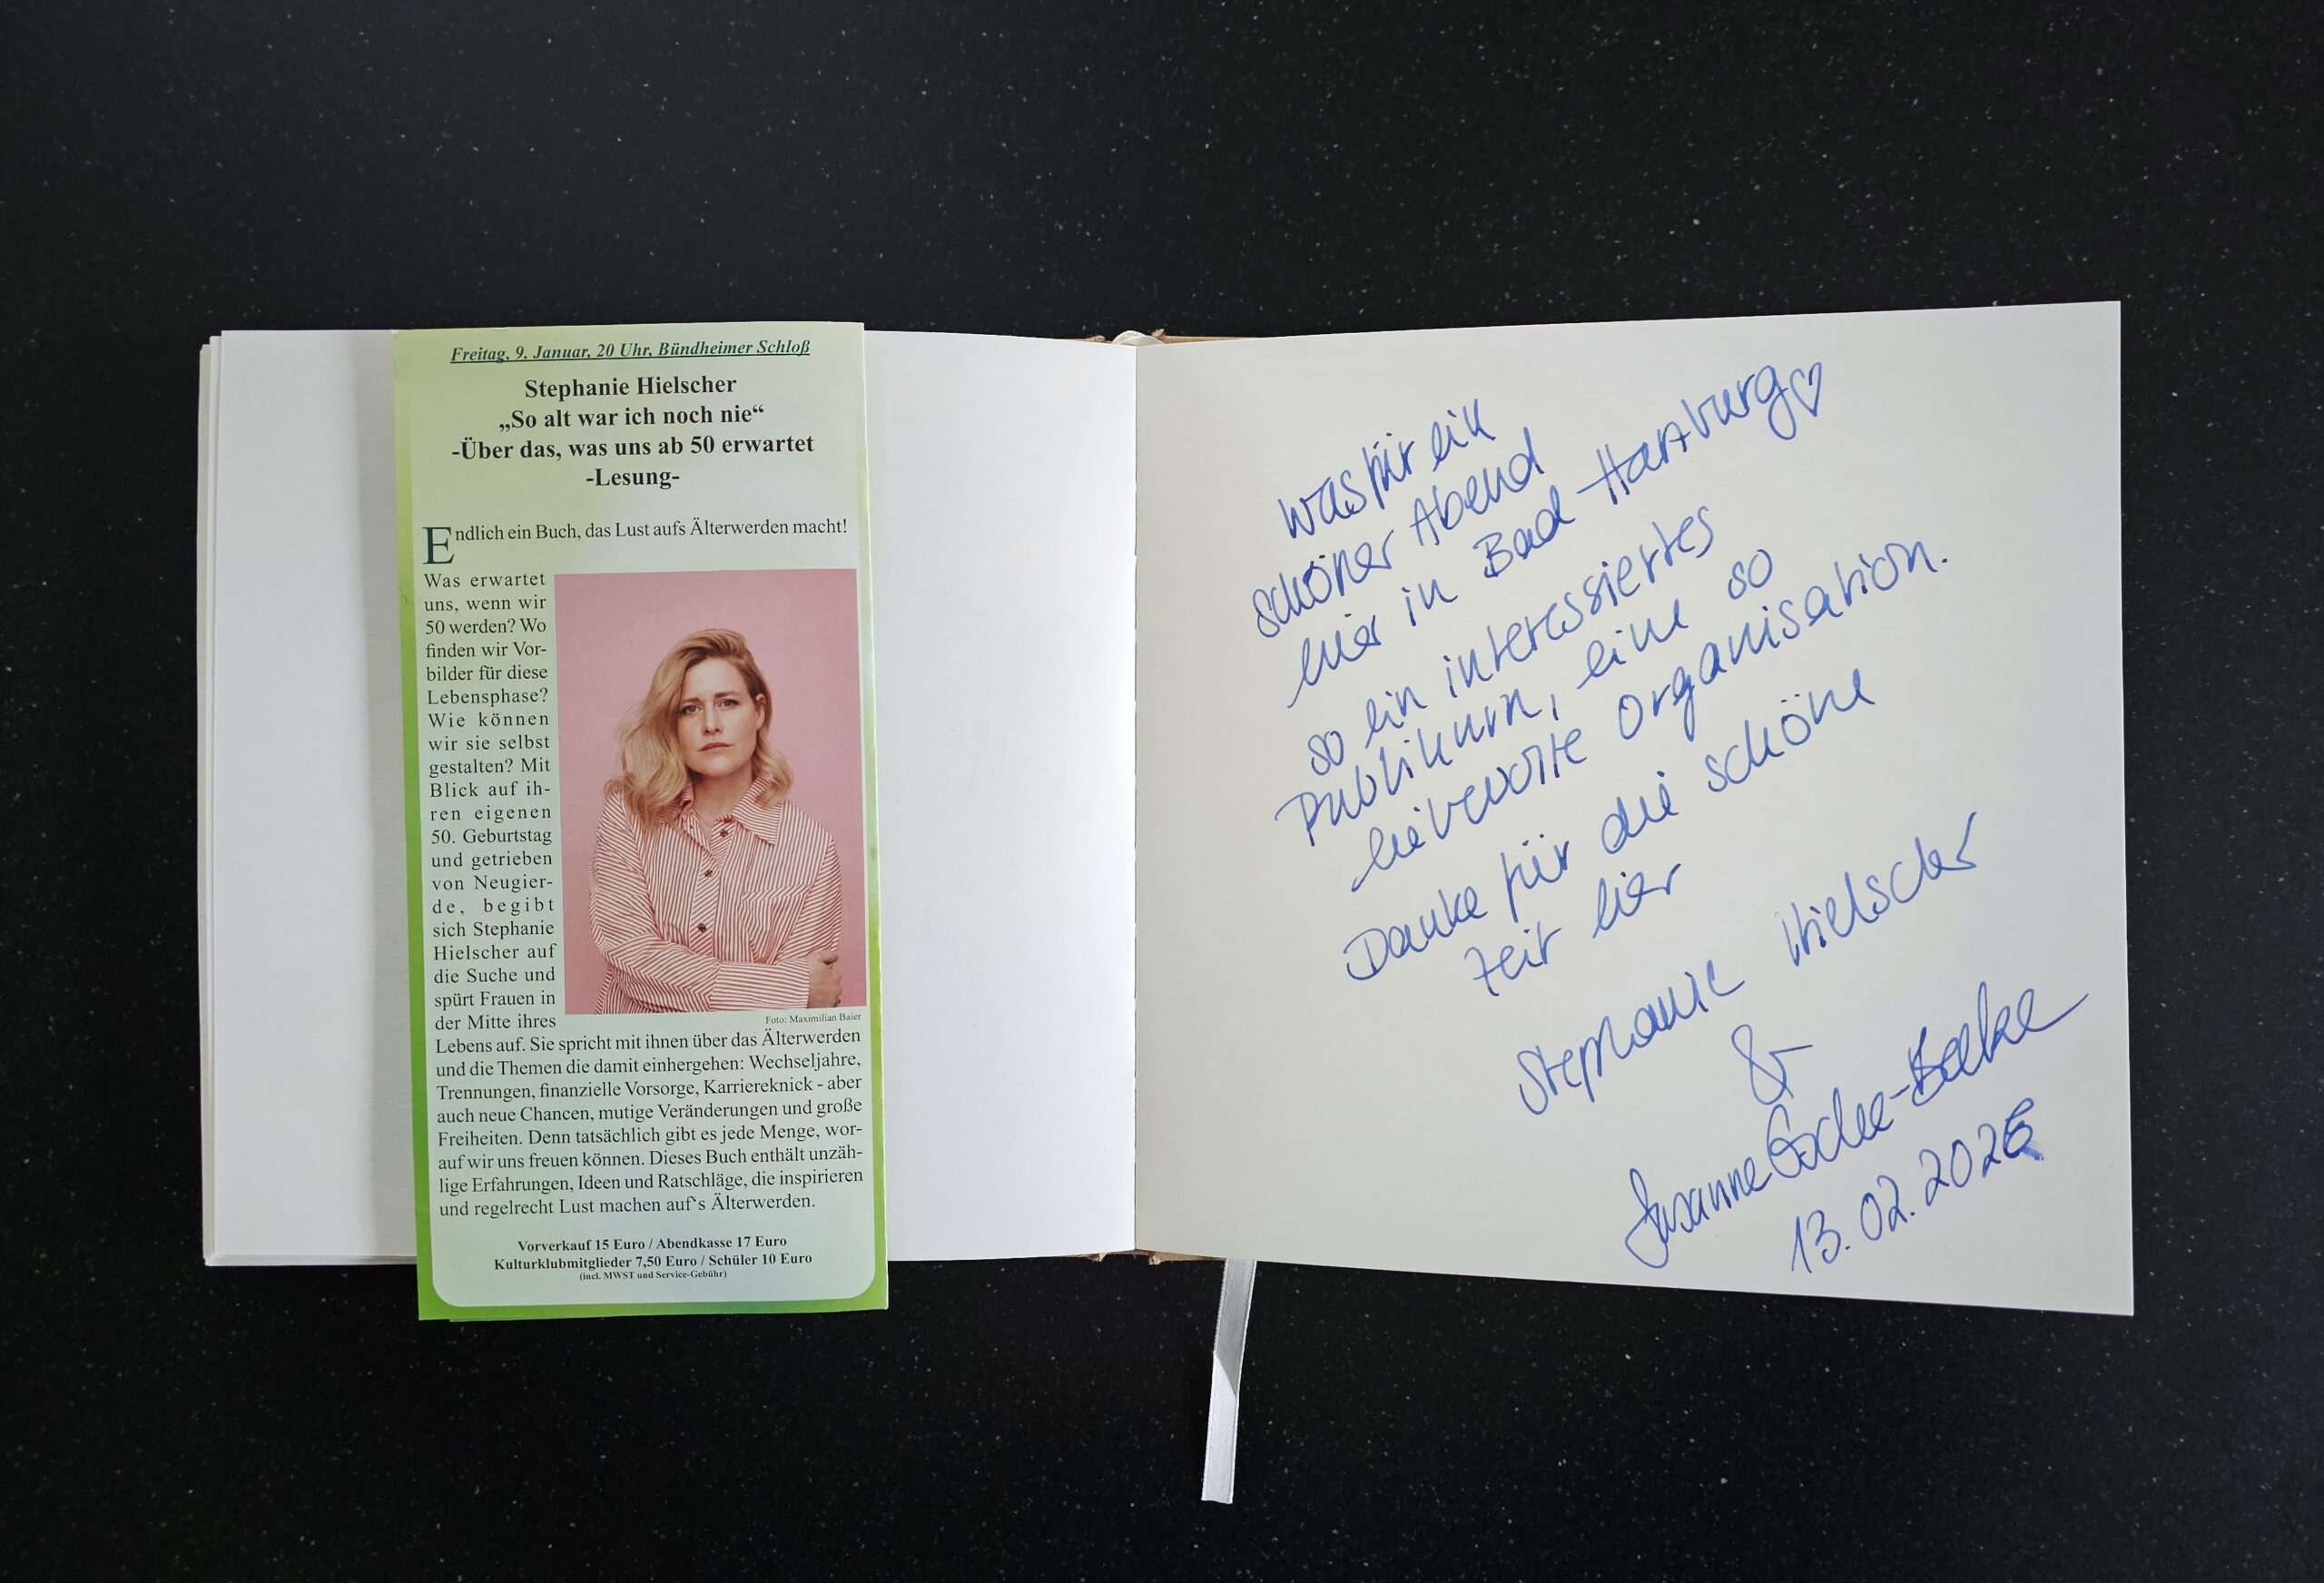 Freitag, 9. Januar, 20 Uhr, Bündheimer Schloß
Stephanie Hielscher
„So alt war ich noch nie“
-Über das, was uns ab 50 erwartet
-Lesung-
Endlich ein Buch, das Lust aufs Älterwerden macht!
Was erwartet
uns, wenn wir
50 werden? Wo
finden wir Vor-
bilder für diese
Lebensphase?
Wie können
wir sie selbst
gestalten? Mit
Blick auf ih-
ren eigenen
50. Geburtstag
und getrieben
von Neugier-
de, begibt
sich Stephanie
Hielscher auf
die Suche und
spürt Frauen in
der Mitte ihres
Foto: Maximilian Baier
Lebens auf. Sie spricht mit ihnen über das Älterwerden
und die Themen die damit einhergehen: Wechseljahre,
Trennungen, finanzielle Vorsorge, Karriereknick - aber
auch neue Chancen, mutige Veränderungen und große
Freiheiten. Denn tatsächlich gibt es jede Menge, wor-
auf wir uns freuen können. Dieses Buch enthält unzäh-
lige Erfahrungen, Ideen und Ratschläge, die inspirieren
und regelrecht Lust machen auf‘s Älterwerden.
Vorverkauf 15 Euro / Abendkasse 17 Euro
Kulturklubmitglieder 7,50 Euro / Schüler 10 Euro
(incl. MWST und Service-Gebühr)
Was für ein
schöner Abend
hier in Bad Harzburg♡
so ein interessiertes
Publikum, eine so
liebevolle Organisation.
Danke für die schöne
Zeit hier
Stephanie Hielscher
&
Susanne
13.02.2026